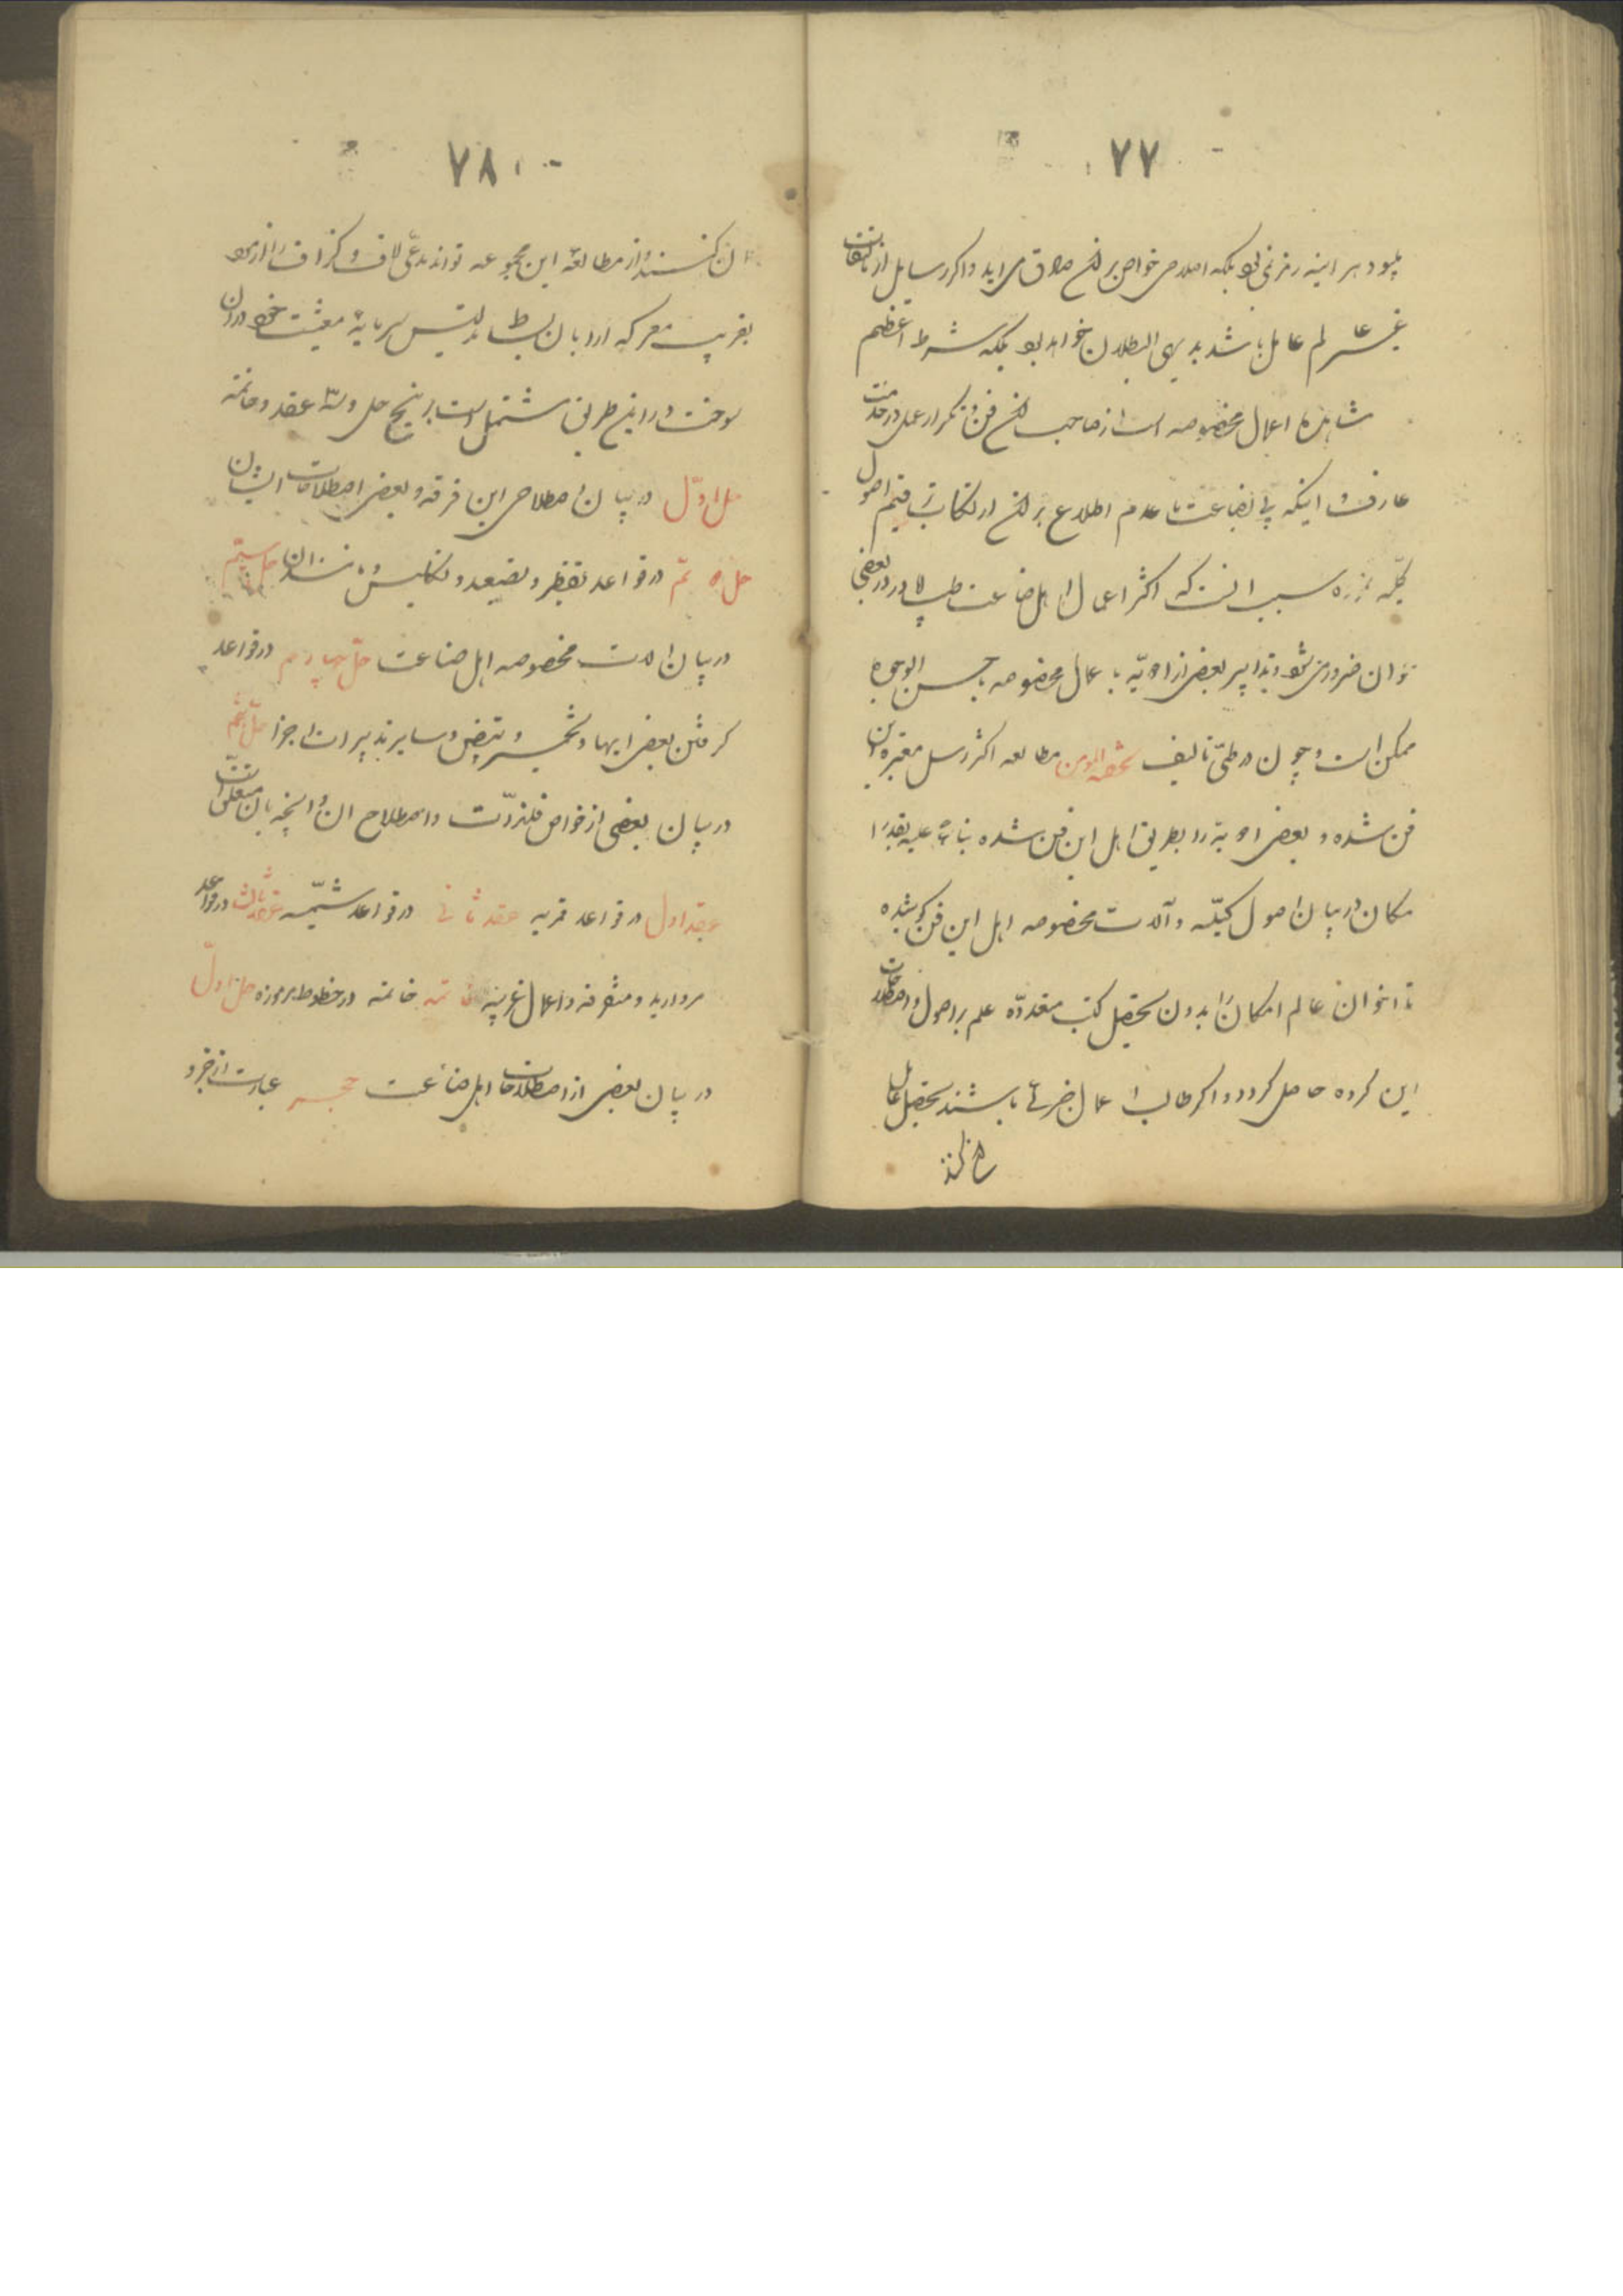 ۷۷
بود هر اینه رمز نمی بود بلکه اصلاحی خواص بر آن صادق می اید و اگر رسایل از تالیفات
غیر عالم عامل باشد بدیهی البطلان خواهد بود بلکه شرط اعظم
مشاهده اعمال مخصوصه است از صاحب آن فن و تکرار عمل در خدمت
عارف و اینکه بی بضاعت با عدم اطلاع بر آن ارتکاب ترقیم اصول
کلیه نمود سبب آنست که اکثر اعمال اهل صناعت طب را در بعضی
توان ضروری شود و تدابیر بعضی از ادویه با عمال مخصوصه باحسن الوجوه
ممکن است و چون در طی تالیف تحفة المومن مطالعه اکثر رسل معتبره این
فن شده و بعضی ادویه را بطریق اهل این فن شده بناء علیه بقدر ا
مکان در بیان اصول کلیه و آلات مخصوصه اهل این فن کوشیده
تا اخوان عالم امکان را بدون تحصیل کتب متعدده علم بر اصول و اصطلاحات
این گروه حاصل گردد و اگر طالب اعمال جزئی باشند تحصیل
۷۸
ان کنند و از مطالعه این مجموعه توانند مدعی لاف و گزاف را از
بفریب معرکه اردبان بساط تلبیس سرمایه معیشت خود در ان
سوخت و را این طریق مشتمل است بر پنج حل و سه عقد و خاتمه
حل اول در بیان اصطلاحی این فرقه و بعضی اصطلاحات ایشان
حل دویم در قواعد تقطیر و تصعید و تکلیس و مانند ان حل سیم
در بیان الات مخصوصه اهل صناعت حل چهارم در قواعد
گرفتن بعضی ابها و تخمیر و تبیض و سایر تدبیرات اجزا حل پنجم
در بیان بعضی از خواص فلزات و اصطلاح ان و انچه بان متعلق است
عقد اول در قواعد قمریه عقد ثانی در قواعد شمسیه عقد ثالث در قواعد
مروارید و متفرقه و اعمال غریبه خاتمه خاتمه در خطوط مرموزه حل اول
در بیان بعضی از اصطلاحات اهل صناعت حجر عبارت از